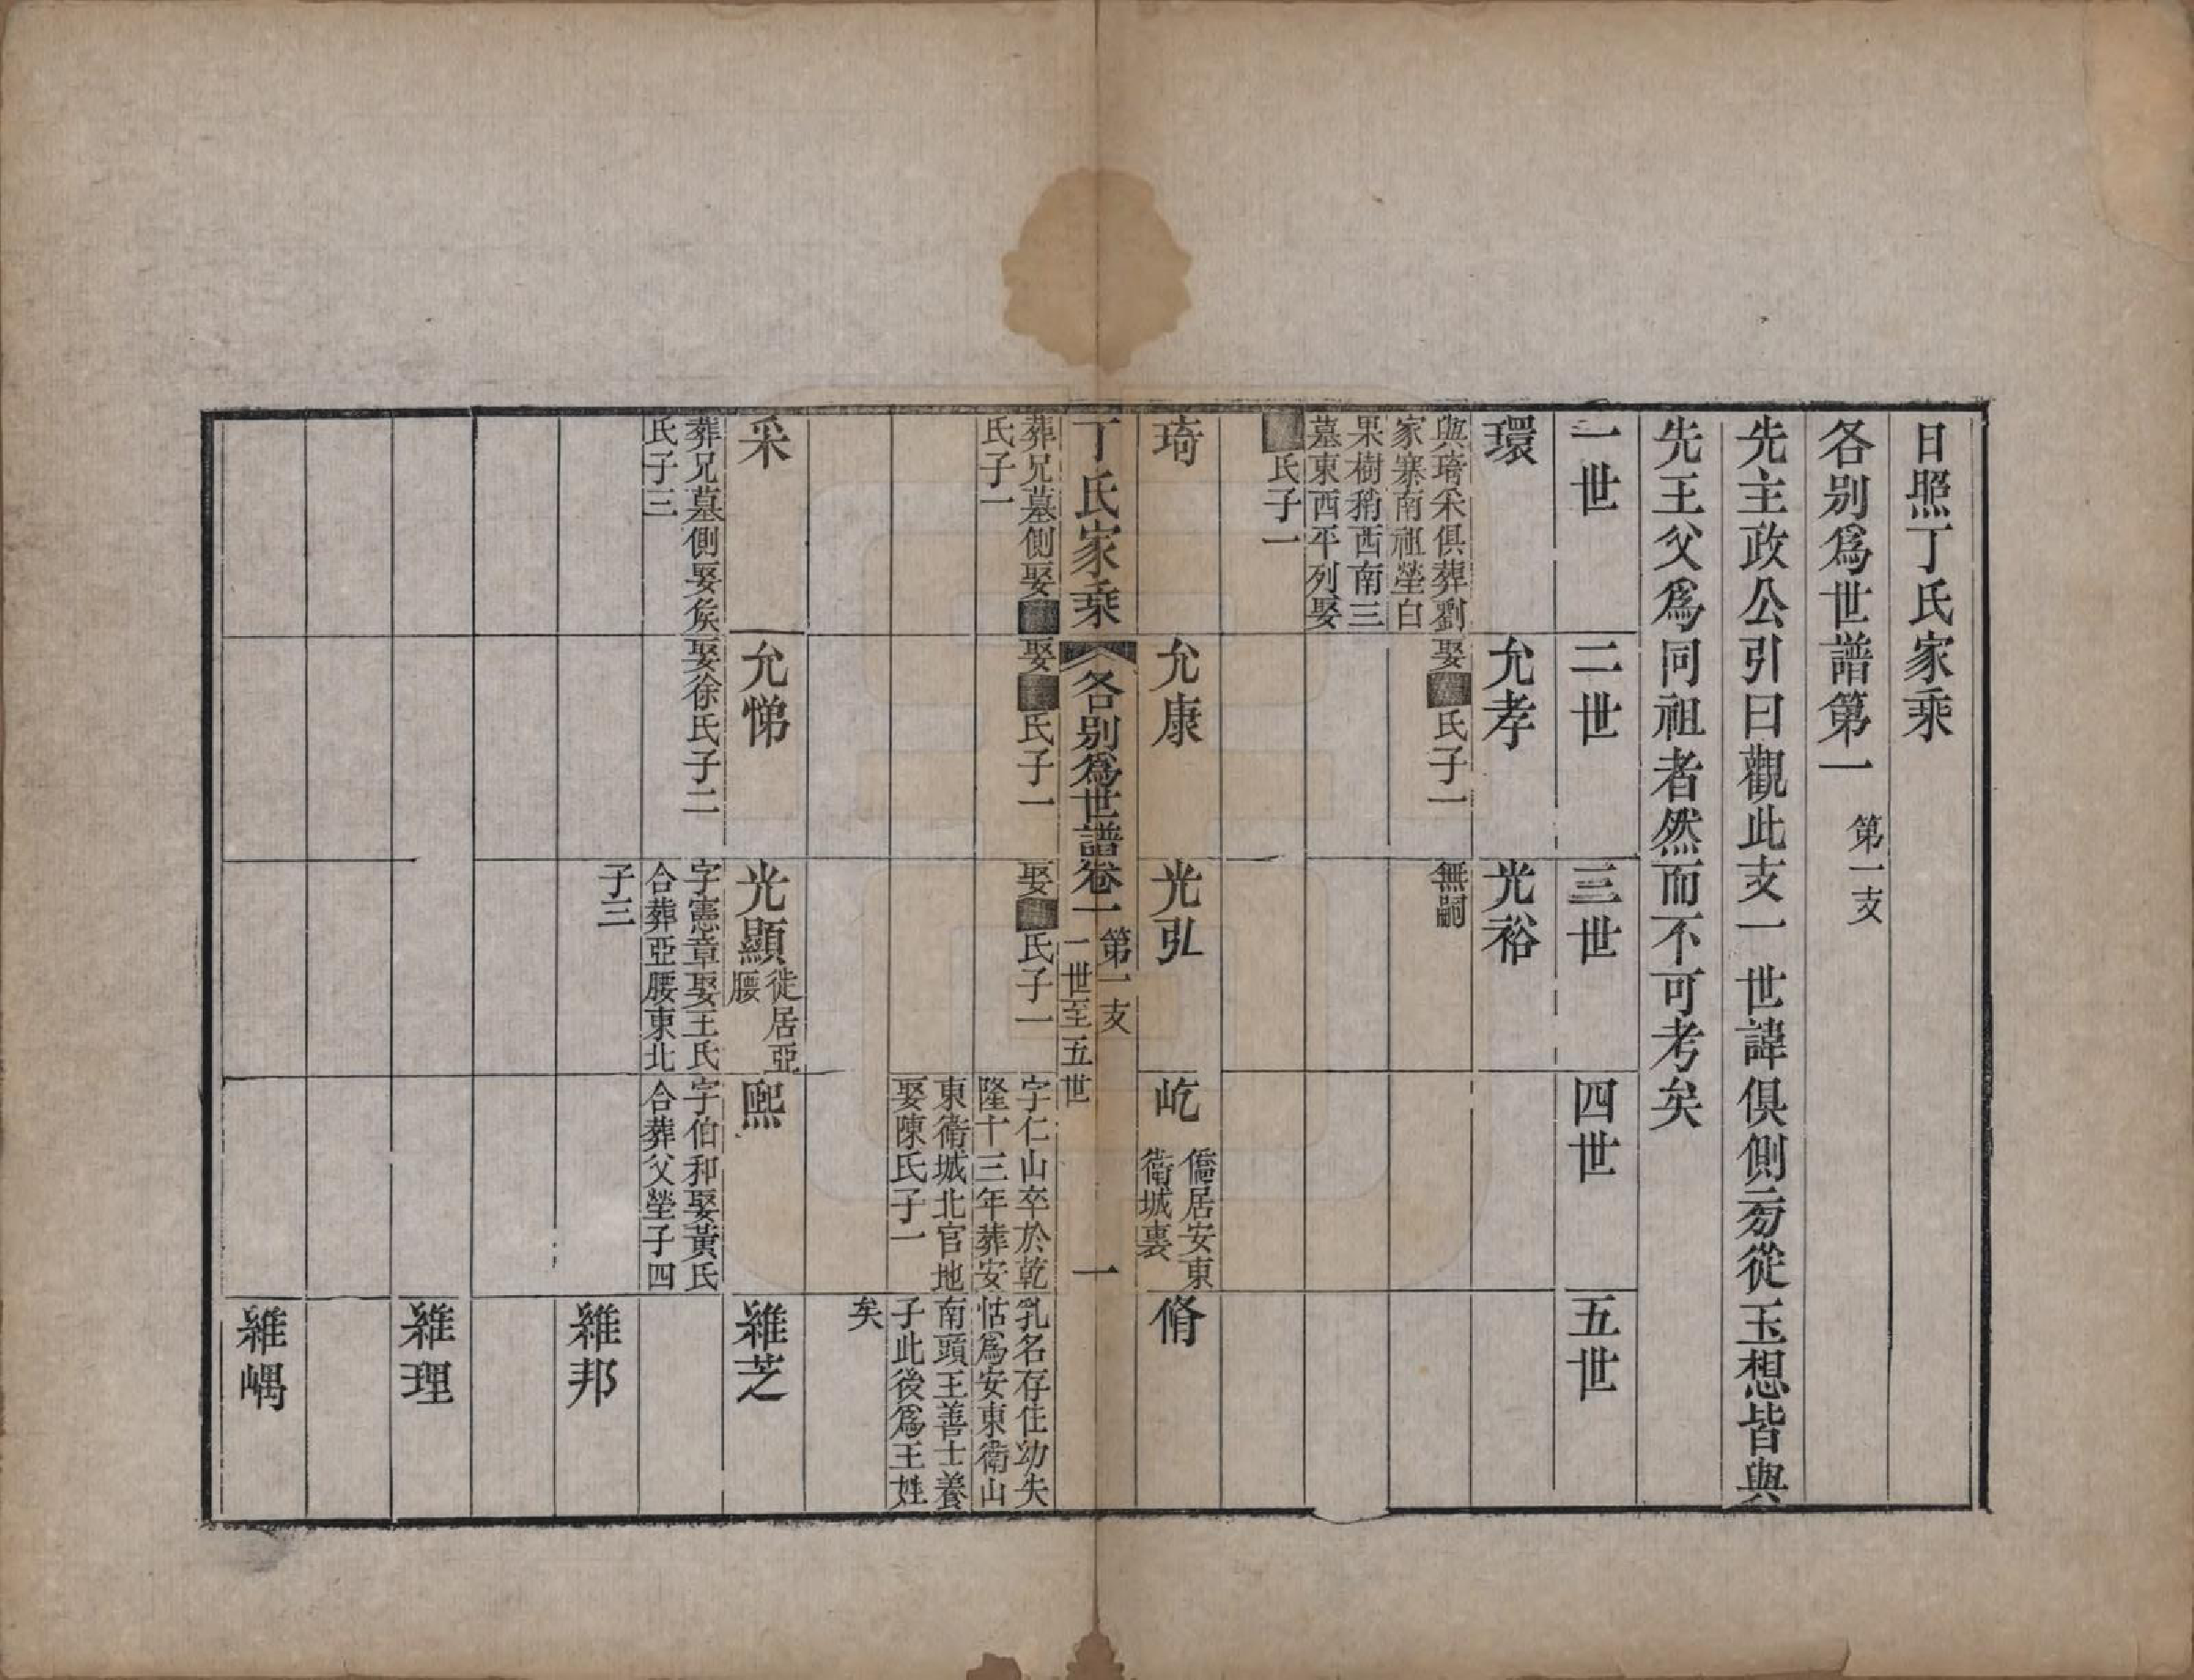 日照丁氏家乘
各别爲世譜第一 第一支
先主政公引曰觀此支一世諱俱側旁從玉想皆與
先王父爲同祖者然而不可考矣
一世
二世
三世
四世
五世
環
與琦采俱葬劉
家寨南祖塋白
果樹稍西南三
墓東西平列娶
氏子一
允孝
娶
氏子一
光裕
無嗣
琦
葬兄墓側娶
氏子一
允康
娶
氏子一
光弘
娶
氏子一
屹
僑居安東
衛城裏
字仁山卒於乾
隆十三年葬安
東衛城北官地
娶陳氏子一
脩
乳名存住幼失
怙爲安東衛山
南頭王善士養
子此後爲王姓
矣
丁氏家乘
各别爲世譜卷一
第一支
一世至五世
一
采
葬兄墓側娶矦
氏子三
允悌
娶徐氏子二
光顯
徙居亞
腰
字憲章娶王氏
合葬亞腰東北
子三
熙
字伯和娶黃氏
合葬父塋子四
維芝
維邦
維理
維嵎